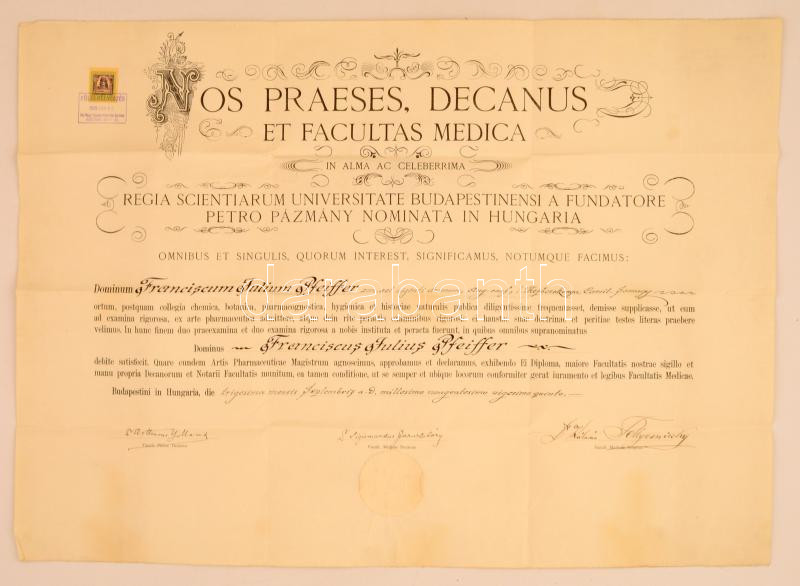 NOS PRAESES, DECANUS
ET FACULTAS MEDICA
IN ALMA AC CELEBERRIMA
REGIA SCIENTIARUM UNIVERSITATE BUDAPESTINENSI A FUNDATORE
PETRO PÁZMÁNY NOMINATA IN HUNGARIA
OMNIBUS ET SINGULIS, QUORUM INTEREST, SIGNIFICAMUS, NOTUMQUE FACIMUS:
Dominum Franciscum Julium Pfeiffer
ortum, postquam collegia chemica, botanica, pharmacognostica, hygienica et historiae naturalis publica diligentissime frequentasset, demisse supplicasse, ut eum
ad examina rigorosa, ex arte pharmaceutica admittere, eique dein rite peractis examinibus rigorosis et haustae suae doctrinae et peritiae testes literas praebere
velimus. In hunc finem duo praeexamina et duo examina rigorosa a nobis instituta et peracta fuerunt, in quibus omnibus supranominatus
Dominus Franciscus Julius Pfeiffer
debite satisfecit. Quare eundem Artis Pharmaceuticae Magistrum agnoscimus, approbamus et declaramus, exhibendo Ei Diploma, maiore Facultatis nostrae sigillo et
manu propria Decanorum et Notarii Facultatis munitum, ea tamen conditione, ut se semper et ubique locorum conformiter gerat iuramento et legibus Facultatis Medicae.
Budapestini in Hungaria, die trigesima mensis Septembris a. D. millesimo nongentesimo vigesimo quinto.
darabanth